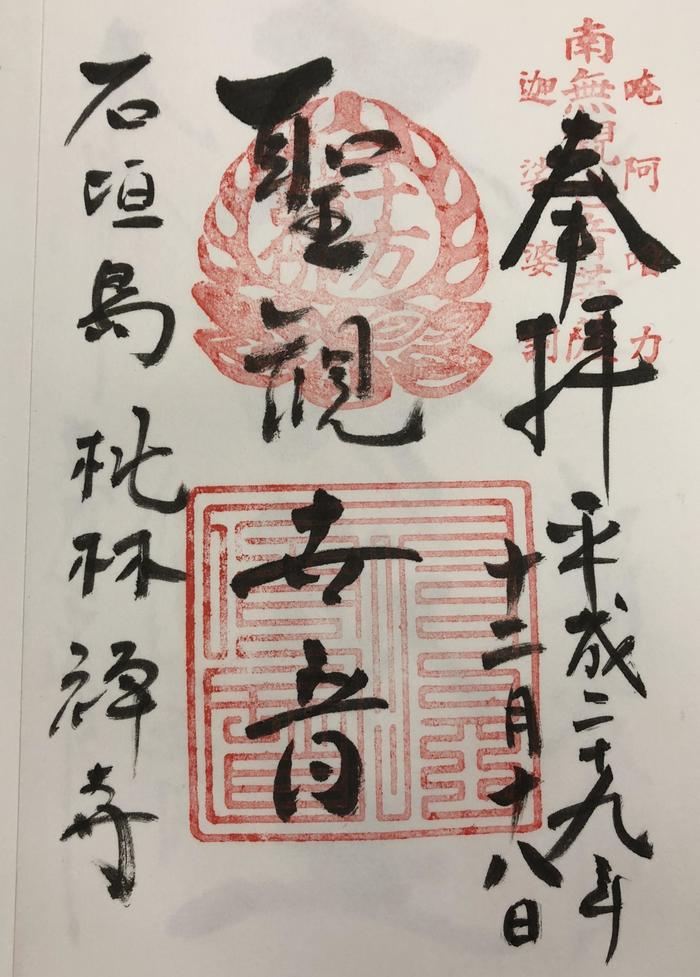 唵阿嚕力
南無觀世音菩薩
迦娑婆訶
奉拝
平成二十九年
十二月十八日
聖観世音
十方
石垣島 桃林禅寺